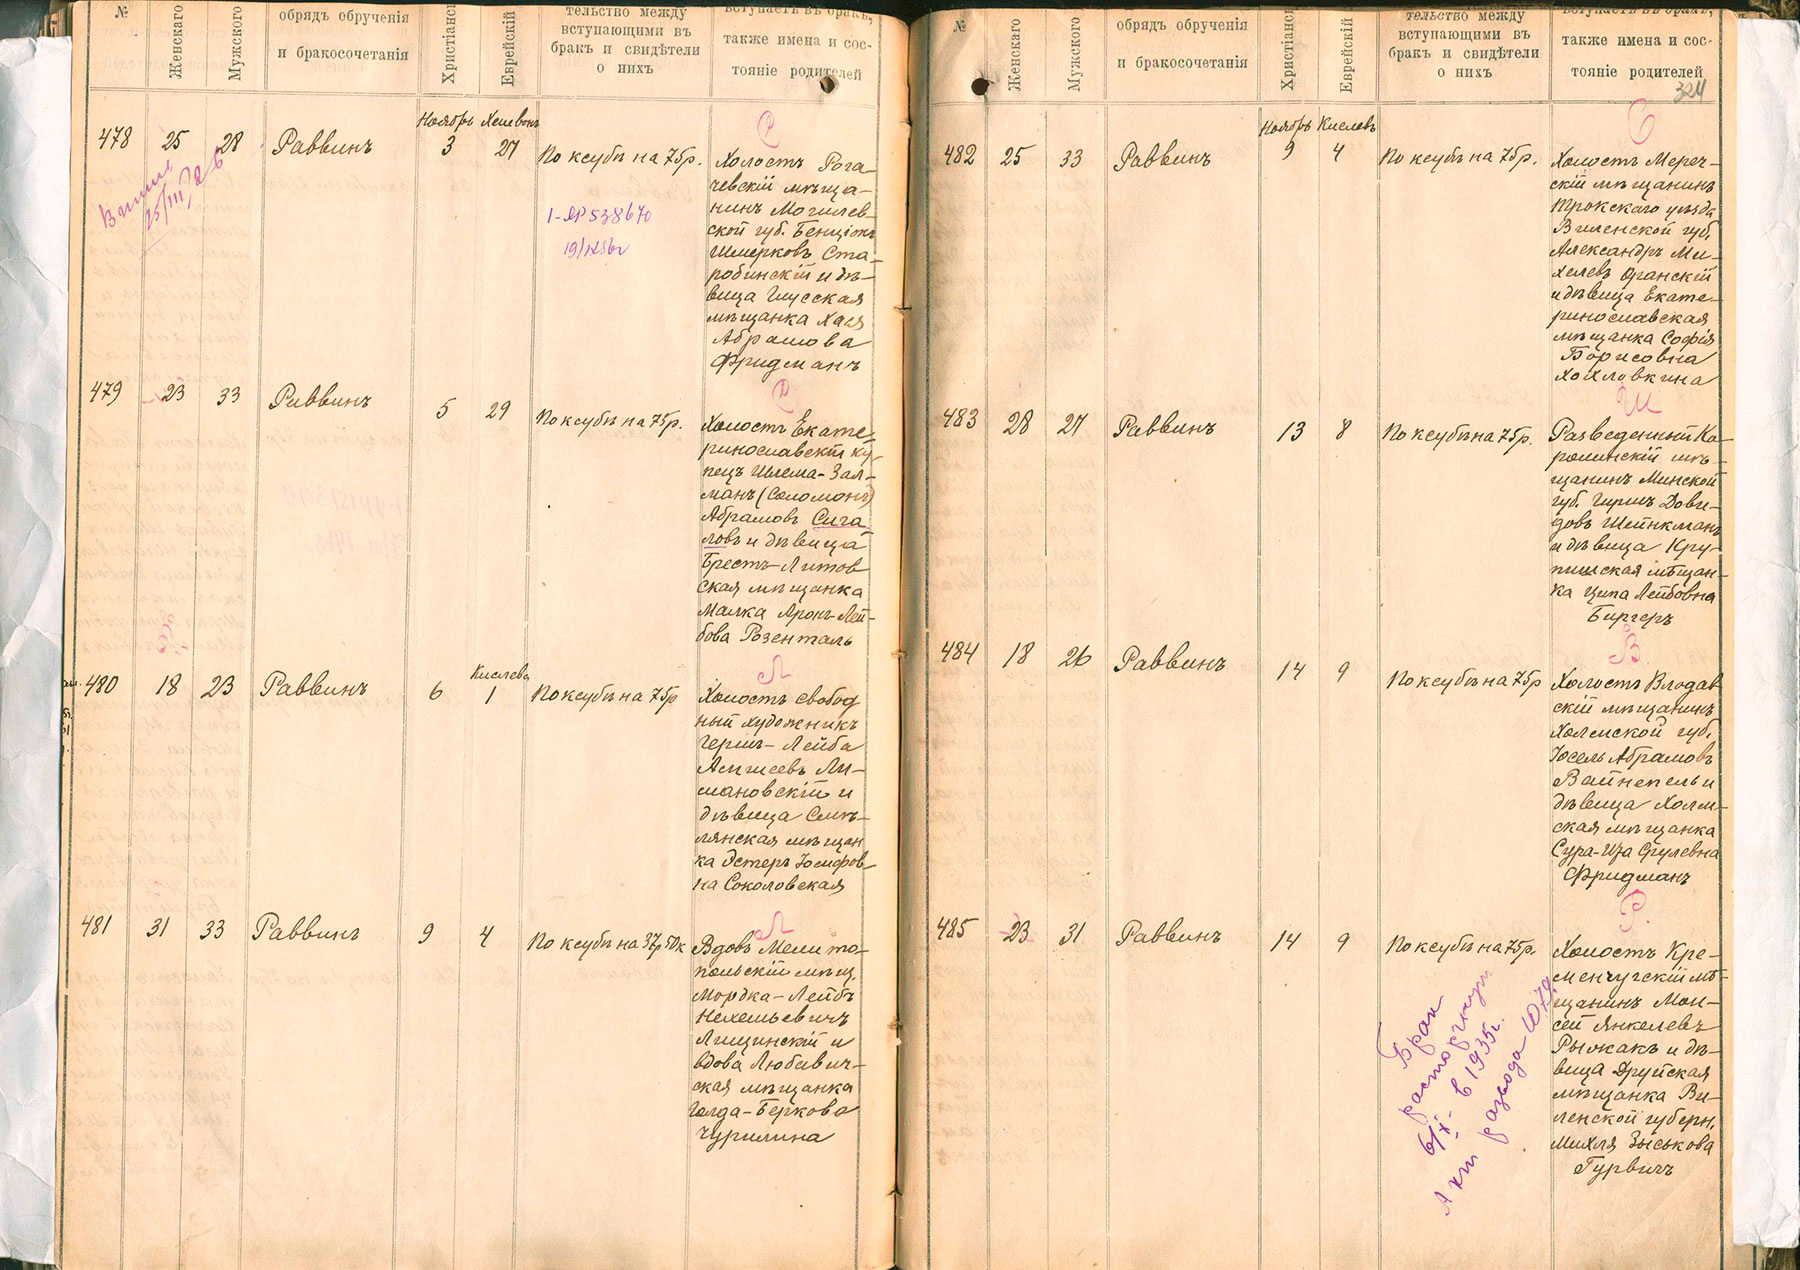 №
Женскаго
Мужского
обрядъ обрученія
и бракосочетанія
Христіанскій
Еврейскій
тельство между
вступающими въ
бракъ и свидѣтели
о нихъ
вступаетъ въ бракъ,
также имена и сос-
тояніе родителей
Ноябрь Хешвонъ
478 25 28 Раввинъ 3 27 По ксубѣ на 75р.
Холостъ Рога-
чевскій мѣща-
нинъ Могилев-
ской губ. Бенціонъ
Шмерковъ Ста-
робинскій и дѣ-
вица Глусская
мѣщанка Хася
Абрамова
Фридманъ
25/III
1-АР 538670
479 23 33 Раввинъ 5 29 По ксубѣ на 75р.
Холостъ Екате-
ринославскій ку-
пецъ Шлема-Зал-
манъ (Соломонъ)
Абрамовъ Сига-
ловъ и дѣвица
Брестъ-Литов
ская мѣщанка
Малка Аронъ-Лей-
бова Розенталь
Кислевъ
480 18 23 Раввинъ 6 1 По ксубѣ на 75р
Л
Холостъ свобод
ный художникъ
Гершъ-Лейба
Лі-
мановскій и
дѣвица Смѣ-
лянская мѣщан
ка Эстеръ Іосифов-
на Соколовская
481 31 33 Раввинъ 9 4 По ксубѣ на 37р 50к
Л
Вдовъ Мелито-
польскій мѣщ.
Мордка-Лейбъ
Нехемьевичъ
Лищинскій и
вдова Любавич-
ская мѣщанка
Голда-Беркова
Чурилина
№
Женскаго
Мужского
обрядъ обрученія
и бракосочетанія
Христіанскій
Еврейскій
тельство между
вступающими въ
бракъ и свидѣтели
о нихъ
вступаетъ въ бракъ,
также имена и сос-
тояніе родителей
324
Ноябрь Кислевъ
482 25 33 Раввинъ 9 4 По ксубѣ на 75р.
Холостъ Мереч-
скій мѣщанинъ
Трокскаго уѣзда
Виленской губ.
Александръ Ми-
хелевъ Оранскій
и дѣвица Екате-
ринославская
мѣщанка Софія
Борисовна
Хохловкина
483 28 27 Раввинъ 13 8 По ксубѣ на 75р.
Ш
Разведенный Ка-
ролинскій мѣ-
щанинъ Минской
губ. Гиршъ Дови-
довъ Шейнкманъ
и дѣвица Кру-
пкская мѣщан-
ка Ципа Лейбовна
Биргеръ
484 18 26 Раввинъ 14 9 По ксубѣ на 75р
В
Холостъ Влодав
скій мѣщанинъ
Холмской губ.
Іосель Абрамовъ
Вайнепель и
дѣвица Холм-
ская мѣщанка
Сура-Ита Срулевна
Фридманъ
485 23 31 Раввинъ 14 9 По ксубѣ на 75р.
Р
Холостъ Кре-
менчугскій мѣ-
щанинъ Мои-
сей Янкелевъ
Рыжакъ и дѣ-
вица Друйская
мѣщанка Ви-
ленской губерн.
Михля Зыськова
Гурвичъ
Брак
расторгнут
6/X в 1935г.
Акт развода 1079.